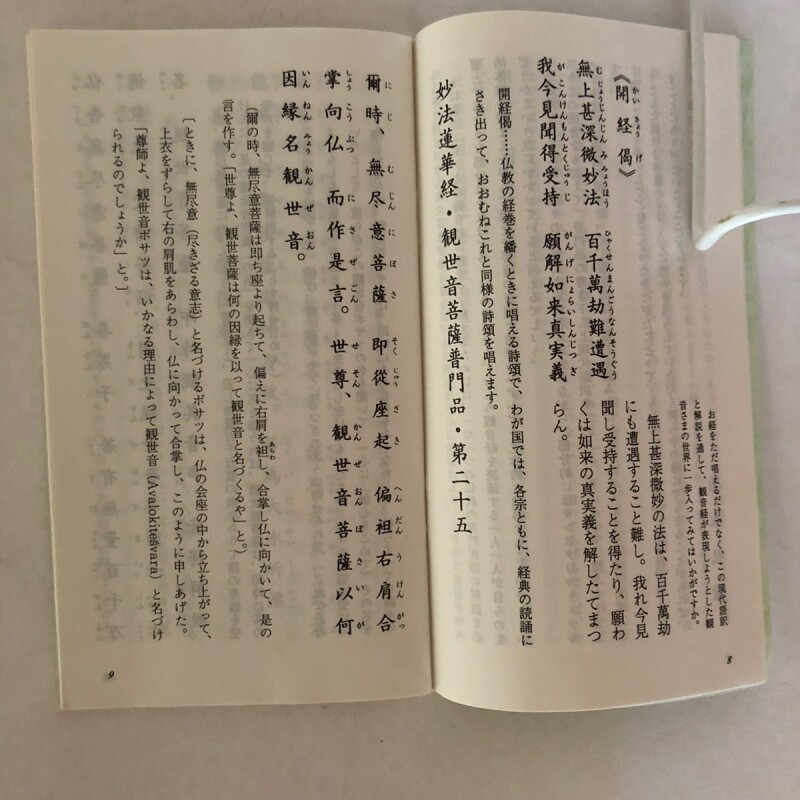 お経をただ唱えるだけでなく、この現代語訳
と解説を通して、観音経が表現しようとした観
音さまの世界に一歩入ってみてはいかがですか。
《開経偈》
無上甚深微妙法 百千萬劫難遭遇
我今見聞得受持 願解如来真実義
無上甚深微妙の法は、百千萬劫
にも遭遇すること難し。我れ今見
聞し受持することを得たり、願わ
くは如来の真実義を解したてまつ
らん。
開経偈……仏教の経巻を繙くときに唱える詩頌で、わが国では、各宗ともに、経典の読誦に
さき出って、おおむねこれと同様の詩頌を唱えます。
妙法蓮華経・観世音菩薩普門品・第二十五
8
爾時、無尽意菩薩 即從座起 偏袒右肩合
掌向仏 而作是言。世尊、観世音菩薩以何
因縁名観世音。
(爾の時、無尽意菩薩は即ち座より起ちて、偏えに右肩を袒し、合掌し仏に向かいて、是の
言を作す。「世尊よ、観世音菩薩は何の因縁を以って観世音と名づくるや」と。)
〔ときに、無尽意(尽きざる意志)と名づけるボサツは、仏の会座の中から立ち上がって、
上衣をずらして右の肩肌をあらわし、仏に向かって合掌し、このように申しあげた。
「尊師よ、観世音ボサツは、いかなる理由によって観世音(Avalokiteśvara)と名づけ
られるのでしょうか」と。〕
9